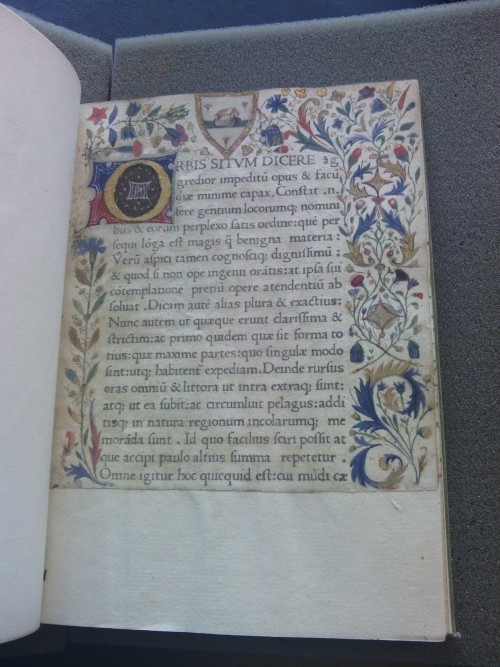 ORBIS SITVM DICERE ag
gredior impeditũ opus & facũ
diæ minime capax. Constat .n.
fere gentium locorumq; nomini
bus & eorum perplexo satis ordine: quẽ per
sequi lõga est magis q̃ benigna materia:
Verũ aspici tamen cognosciq; dignissimũ:
& quod si non ope ingenii orãtis: at ipsa sui
cõtemplatione preciũ opere atendentiũ ab
soluat. Dicam autẽ alias plura & exactius:
Nunc autem ut quæque erunt clarissima &
strictim: ac primo quidem quæ sit forma to
tius: quæ maxime partes: quo singulæ modo
sint: utq; habitent expediam. Deinde rursus
oras omniũ & littora ut intra extraq; sunt:
atq; ut ea subit: ac circumluit pelagus: addi
tisq; in natura regionum incolarumq; me
morãda sunt. Id quo facilius sciri possit at
que accipi paulo altius summa repetetur.
Omne igitur hoc quicquid est: cui mũdi cæ